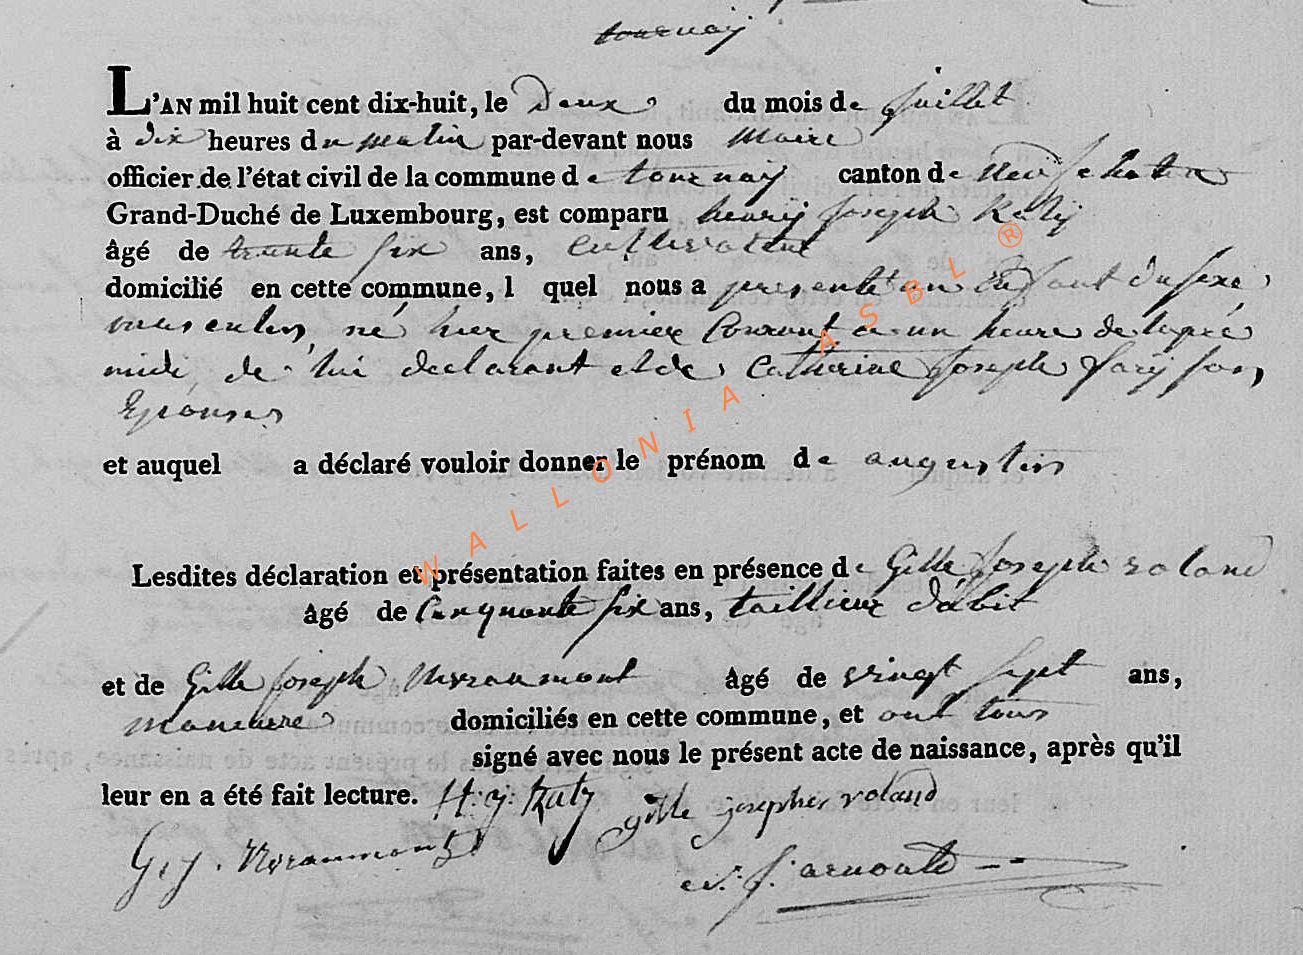 tournaÿ
L'AN mil huit cent dix-huit, le Deux du mois de juillet
à dix heures du matin par-devant nous maire
officier de l'état civil de la commune de tournaÿ canton de neufchateau
Grand-Duché de Luxembourg, est comparu henrÿ joseph
âgé de trente six ans, cultivateur
domicilié en cette commune, l quel nous a presenté un enfant du sexe
masculin, né hier premier Courant a un heure de lapré
midi, de lui declarant et de Catherine joseph son
Epouse
et auquel a déclaré vouloir donner le prénom de augustin
Lesdites déclaration et présentation faites en présence de Gille joseph roland
âgé de Cinquante six ans, taillieur d'abit
et de Gille joseph âgé de vingt sept ans,
domiciliés en cette commune, et ont tous
signé avec nous le présent acte de naissance, après qu'il
leur en a été fait lecture. H: j: gille joseph roland
G. j. arnould
WALLONIA ASBL ®